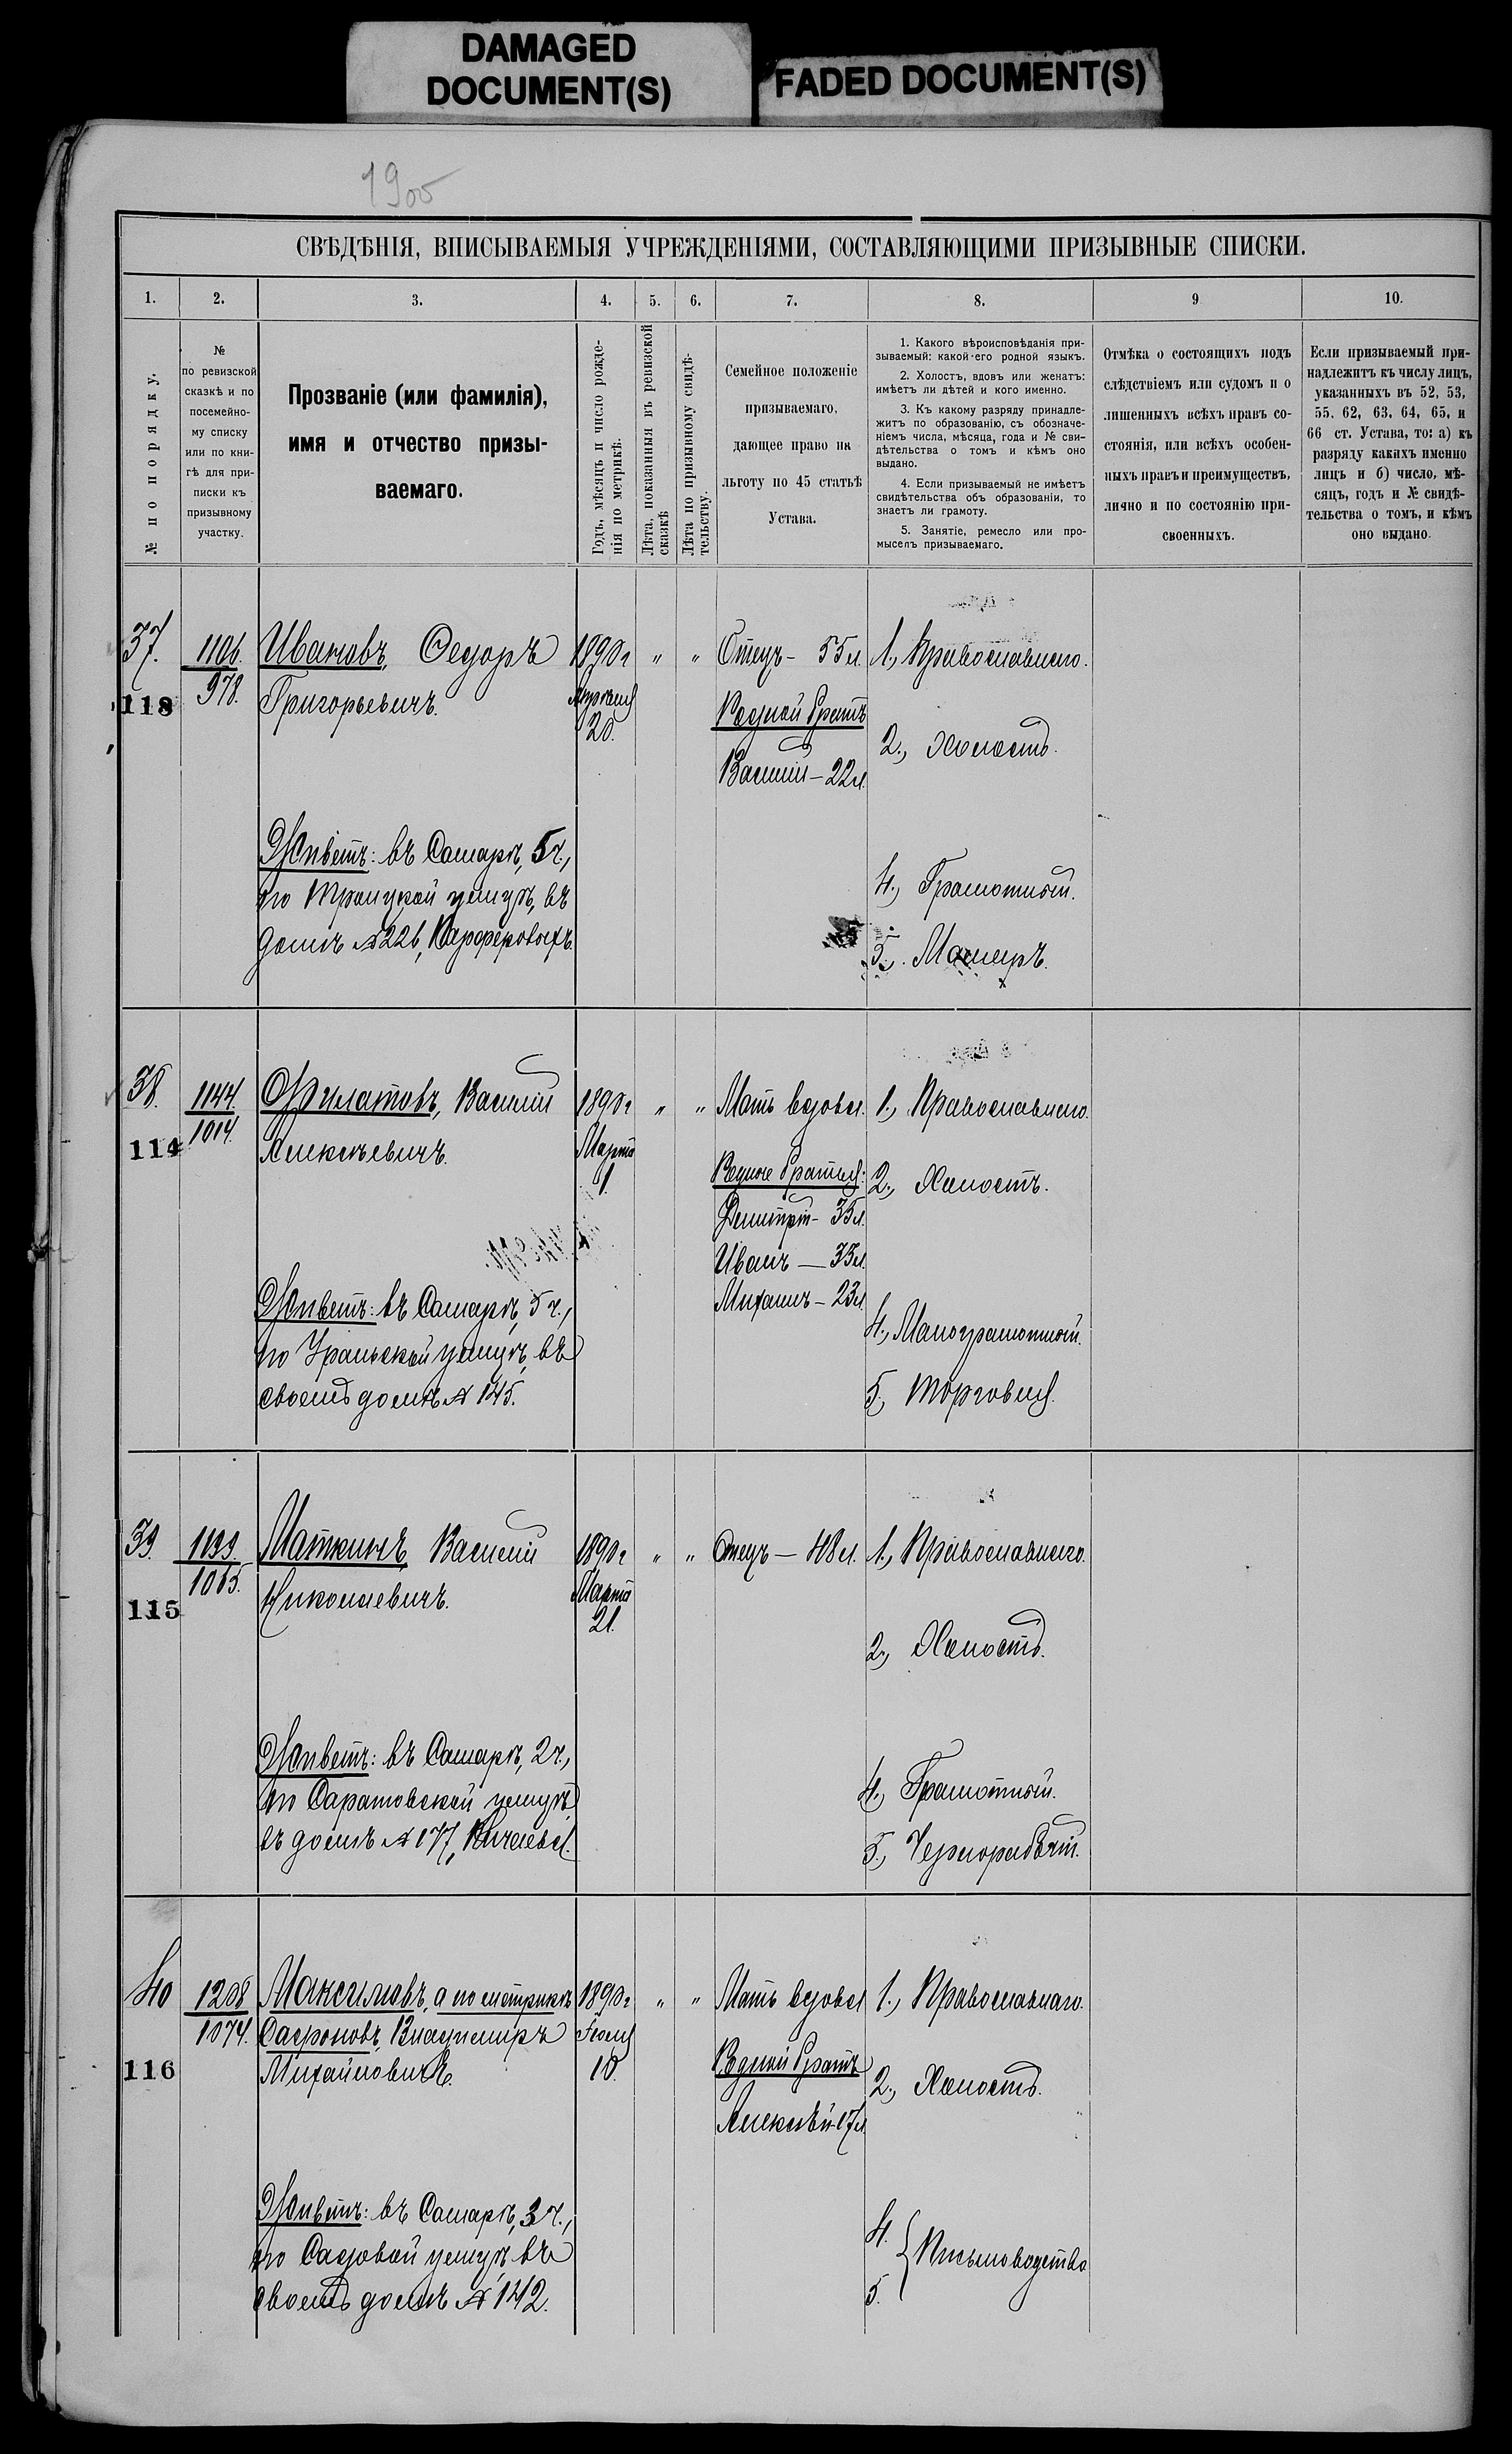 DAMAGED
DOCUMENT(S)
FADED DOCUMENT(S)
1900
СВѢДѢНІЯ, ВПИСЫВАЕМЫЯ УЧРЕЖДЕНІЯМИ, СОСТАВЛЯЮЩИМИ ПРИЗЫВНЫЕ СПИСКИ.
1. 2. 3. 4. 5. 6. 7. 8. 9 10.
№ по порядку.
№
по ревизской
сказкѣ и по
посемейно-
му списку
или по кни-
гѣ для при-
писки къ
призывному
участку.
Прозваніе (или фамилія),
имя и отчество призы-
ваемаго.
Годъ, мѣсяцъ и число рожде-
нія по метрикѣ.
Лѣта, показанныя въ ревизской
сказкѣ
Лѣта по призывному свидѣ-
тельству.
Семейное положеніе
призываемаго,
дающее право на
льготу по 45 статьѣ
Устава.
1. Какого вѣроисповѣданія при-
зываемый: какой его родной языкъ.
2. Холостъ, вдовъ или женатъ:
имѣетъ ли дѣтей и кого именно.
3. Къ какому разряду принадле-
житъ по образованію, съ обозначе-
ніемъ числа, мѣсяца, года и № сви-
дѣтельства о томъ и кѣмъ оно
выдано.
4. Если призываемый не имѣетъ
свидѣтельства объ образованіи, то
знаетъ ли грамоту.
5. Занятіе, ремесло или про-
мыселъ призываемаго.
Отмѣка о состоящихъ подъ
слѣдствіемъ или судомъ и о
лишенныхъ всѣхъ правъ со-
стоянія, или всѣхъ особен-
ныхъ правъ и преимуществъ,
лично и по состоянію при-
своенныхъ.
Если призываемый при-
надлежитъ къ числу лицъ,
указанныхъ въ 52, 53,
55, 62, 63, 64, 65, и
66 ст. Устава, то: а) къ
разряду какихъ именно
лицъ и б) число, мѣ-
сяцъ, годъ и № свидѣ-
тельства о томъ, и кѣмъ
оно выдано.
37.
113
1106.
978.
Ивановъ, Федоръ
Григорьевичъ.
Живетъ: въ Самарѣ, 5 ч.,
по Троицкой улицѣ, въ
домѣ № 226,
1890 г
Апрѣля
20.
" "
Отецъ – 55 л.
Родной братъ
Василій – 22 л.
1., Православнаго.
2., Холостъ.
4., Грамотный.
5., Маляръ.
38.
114
1144.
1014.
Филатовъ, Василій
Алексѣевичъ.
Живетъ: въ Самарѣ, 5 ч.,
по Уральской улицѣ, въ
своемъ домѣ № 145.
1890 г
Марта
1.
" "
Мать вдова.
Родные братья:
Димитрій – 35 л.
Иванъ – 33 л.
Михаилъ – 23 л.
1., Православнаго.
2., Холостъ.
4., Малограмотный.
5., Торговля.
39.
115
1199.
1065.
Маткинъ, Василій
Николаевичъ.
Живетъ: въ Самарѣ, 2 ч.,
по Саратовской улицѣ,
въ домѣ № 177,
1890 г
Марта
21.
" "
Отецъ – 48 л.
1., Православнаго.
2., Холостъ.
4., Грамотный.
5., Чернорабочій.
40
116
1208
1074.
Максимовъ, а по метрикѣ
Сафроновъ, Владимиръ
Михайловичъ.
Живетъ: въ Самарѣ, 3 ч.,
по Садовой улицѣ въ
своемъ домѣ № 142.
1890 г
Іюля
10.
" "
Мать вдова
Родной братъ
Алексѣй – 17 л.
1., Православнаго.
2., Холостъ.
4.
5. } Письмоводство